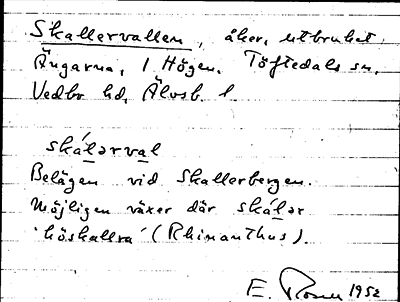 Skallervallen, åker, utbruket
Ängarna, 1 Högen, Töftedals sn,
Vedbo hd, Älvsb. l.
skálərval
Belägen vid Skallerbergen.
Möjligen växer där skálər
'höskallra' (Rhinanthus).
E. 1952